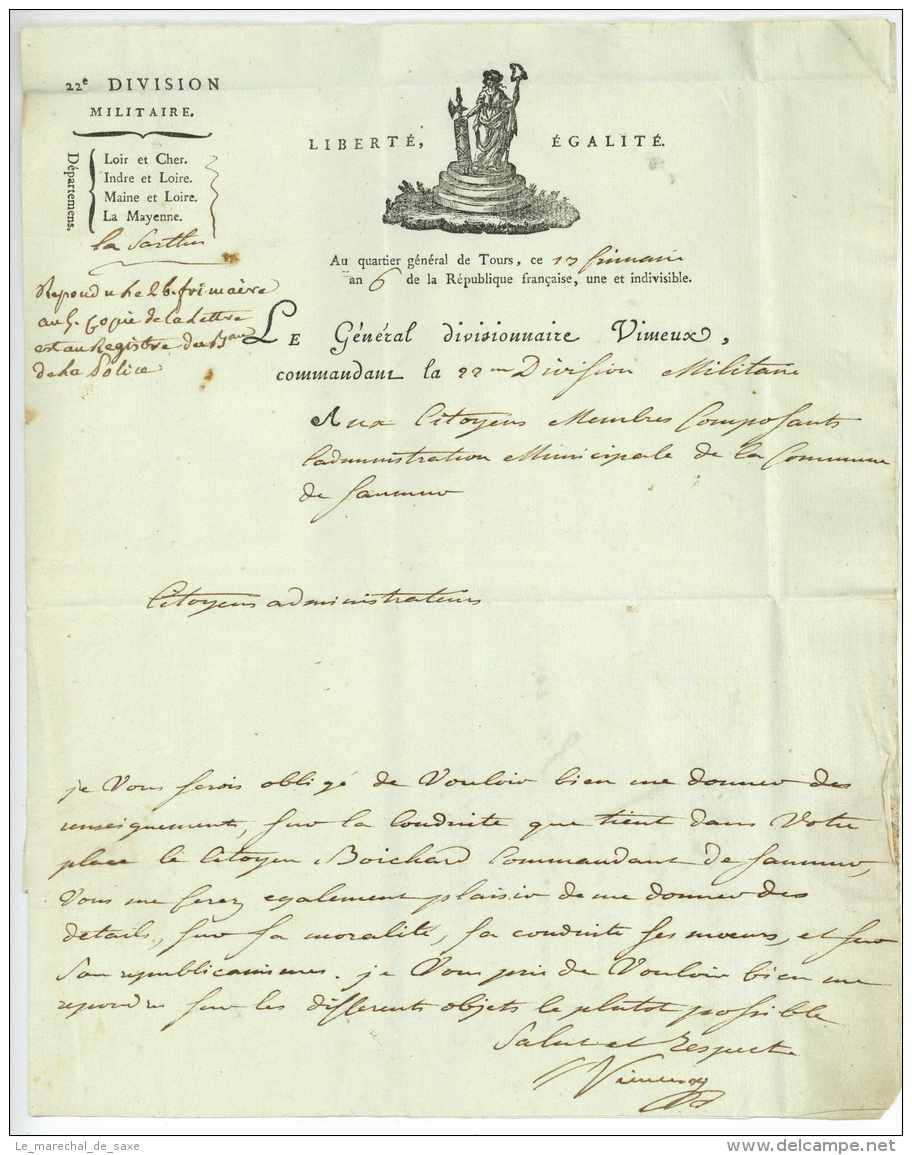 22e DIVISION
MILITAIRE.
Départemens.
Loir et Cher.
Indre et Loire.
Maine et Loire.
La Mayenne.
la Sarthe
LIBERTÉ, ÉGALITÉ.
Au quartier général de Tours, ce 13 frimaire
an 6 de la République française, une et indivisible.
Repondu le 26. frimaire
an 6. Copie de la Lettre
est au Registre du
de la Police
LE Général divisionnaire Vimeux,
commandant la 22me Division Militaire
Aux Citoyens Membres Composants
Ladministration Municipale de la Commune
de Saumur
Citoyens administrateurs
je Vous serois obligé de Vouloir bien me donner des
renseignements, sur la Conduite que tient dans Votre
place le Citoyen Boichard Commandant de Saumur,
Vous me ferez egalement plaisir de me donner des
details, sur sa moralité, sa conduite ses moeurs, et sur
Son republicanismes. je Vous pris de Vouloir bien me
repondre sur les differents objets le plutot possible
Salut et Respect
Vimeux
Le_marechal_de_saxe
www.delcampe.net